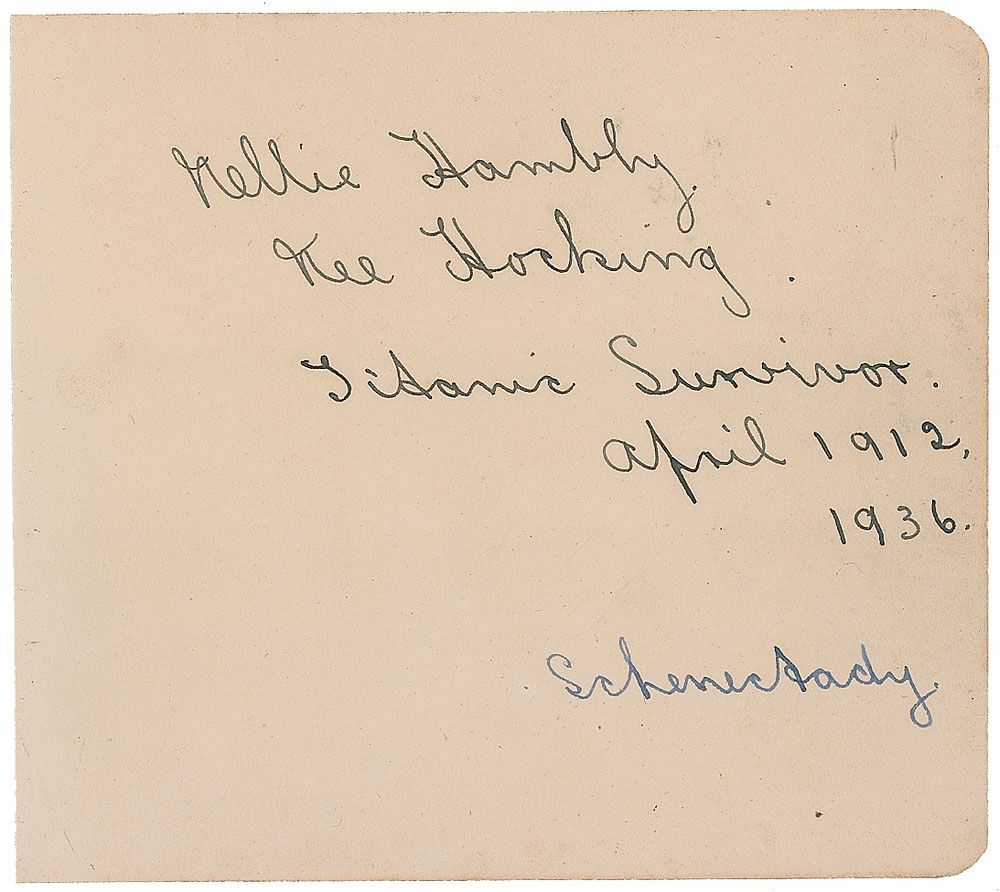 Nellie Hambly.
Nee Hocking.
Titanic Survivor.
April 1912.
1936.
Schenectady.